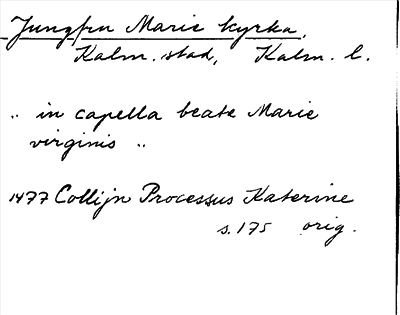 Jungfru Marie kyrka,
Kalm. stad, Kalm. l.
" in capella beate Marie
virginis "
1477 Collijn Processus Katerine
s. 175 orig.